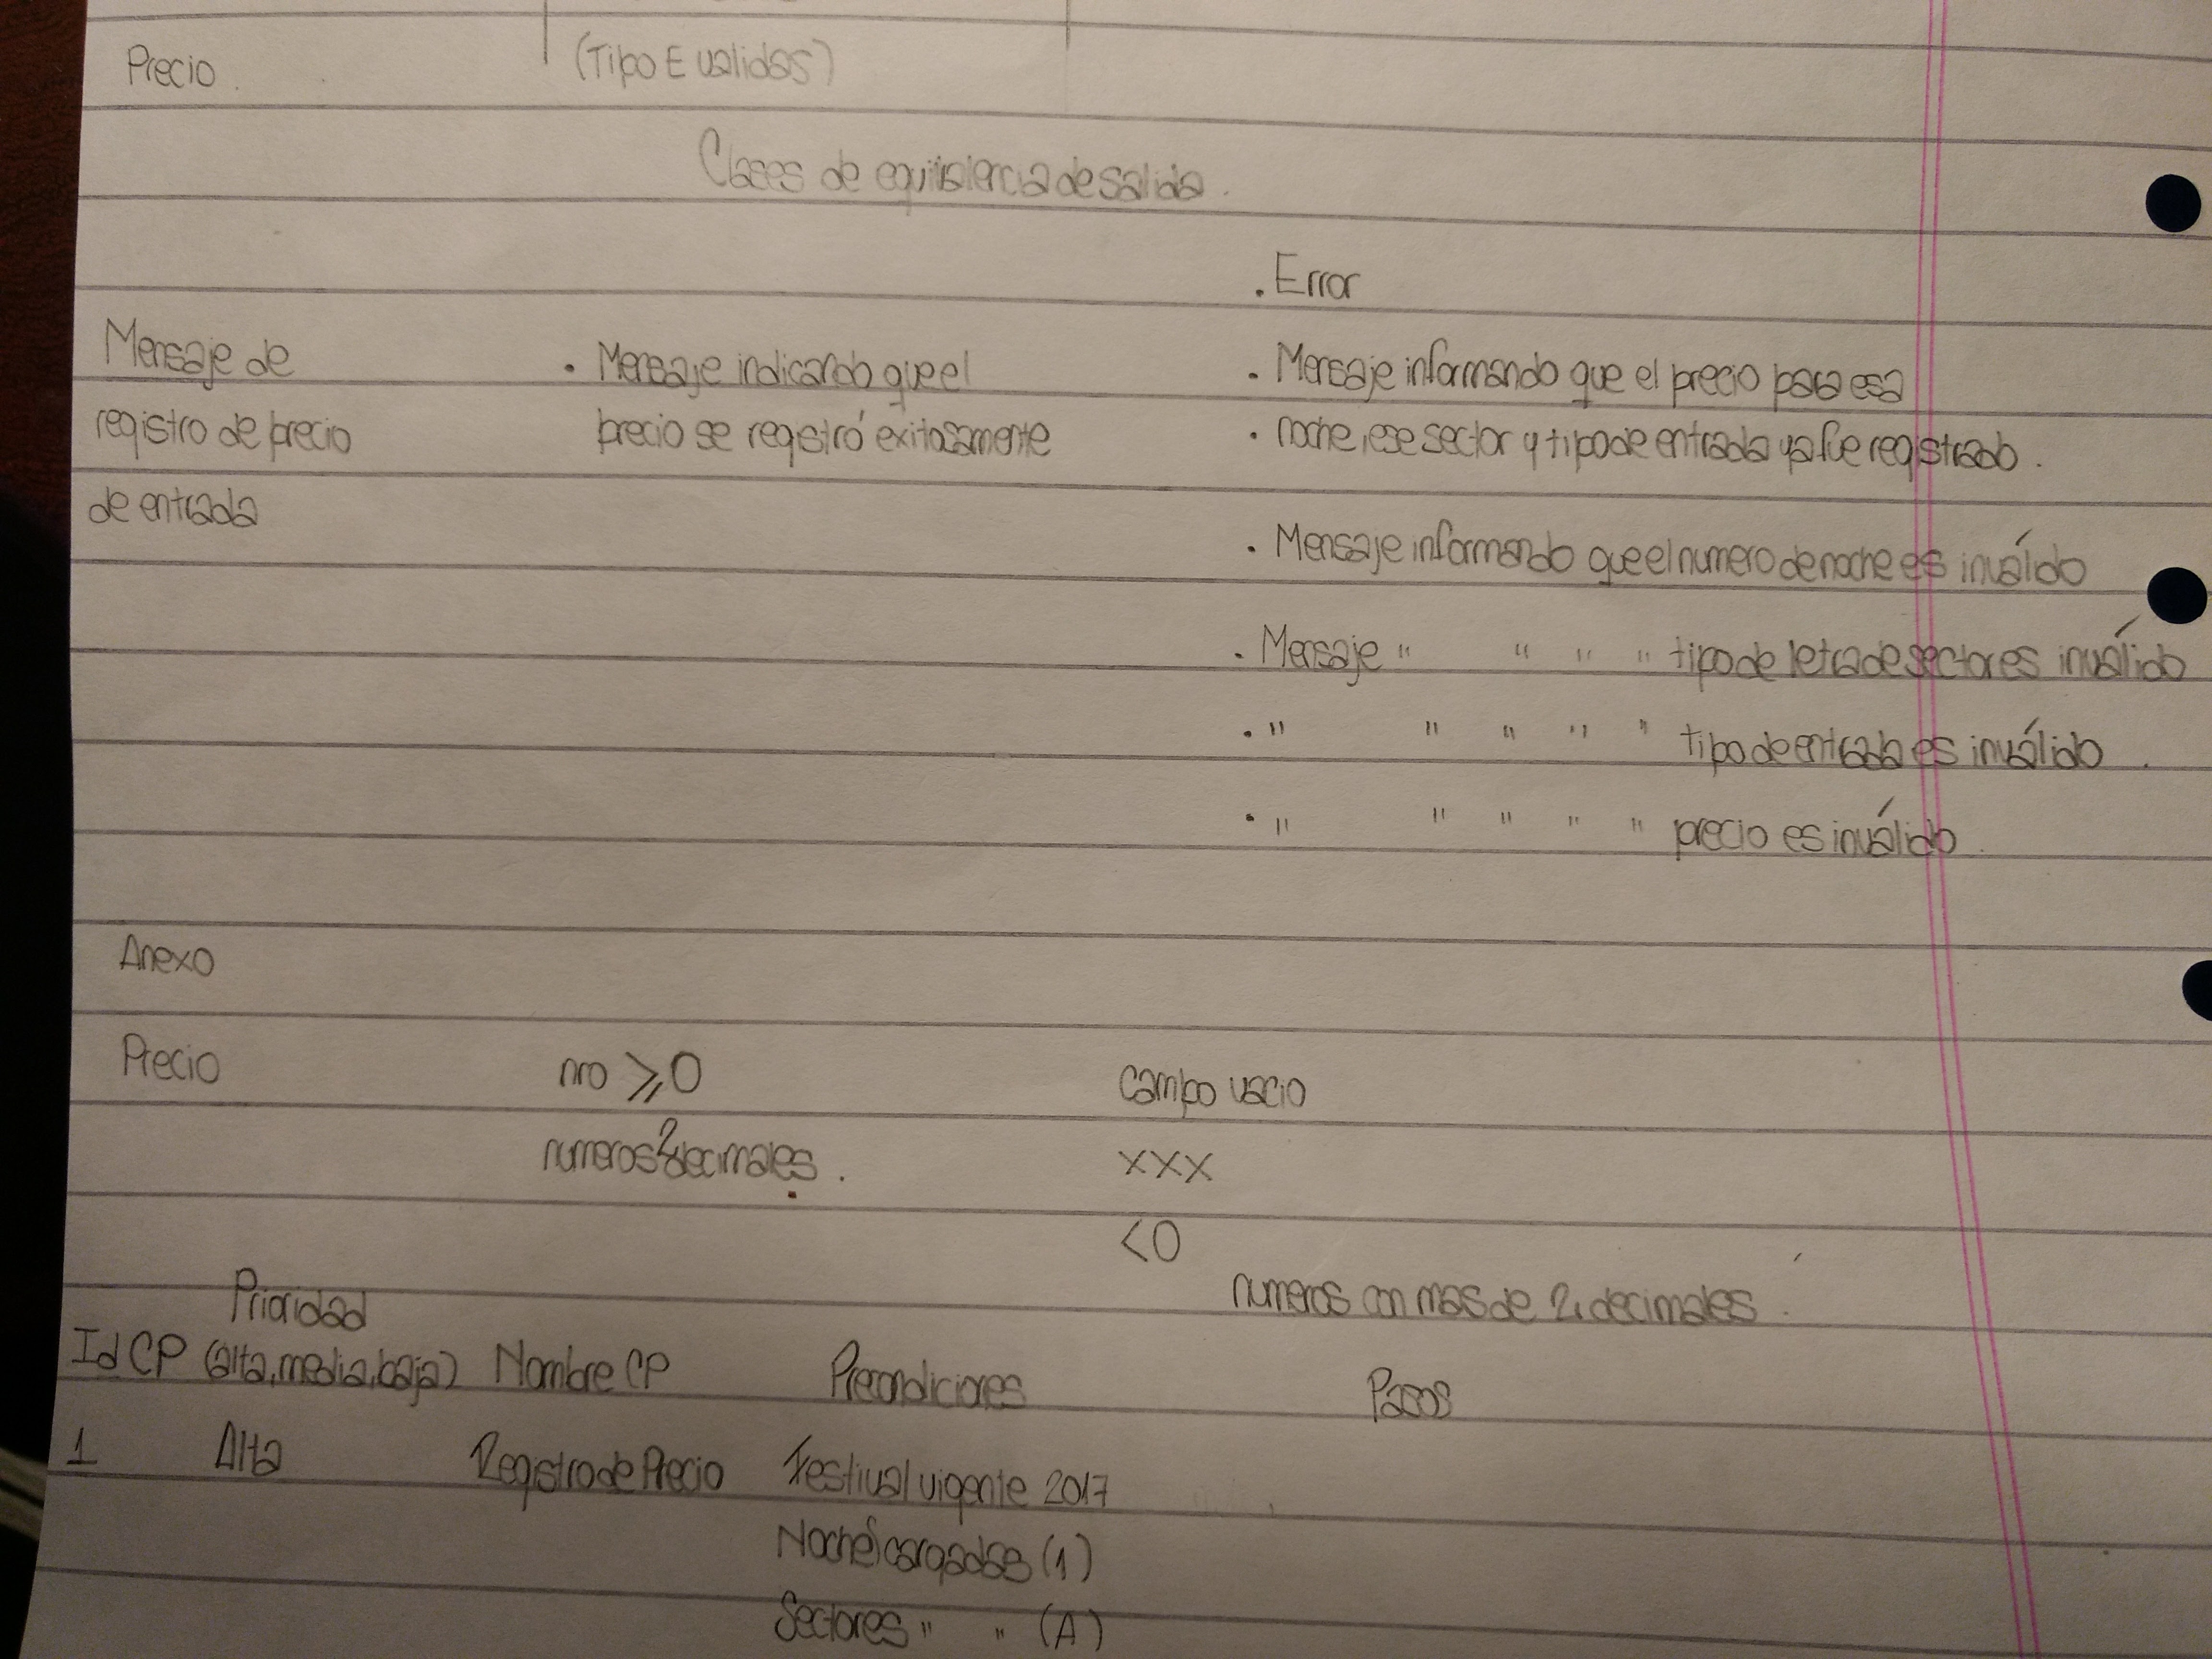 Precio. (Tipo E validas)
Clases de equivalencia de salida.
. Error
Mensaje de . Mensaje indicando que el . Mensaje informando que el precio para esa
registro de precio precio se registró exitosamente . noche, ese sector y tipo de entrada ya fue registrado.
de entrada
. Mensaje informando que el numero de noche es inválido
. Mensaje " " " " tipo de letra de sectores inválido
. " " " " " tipo de entrada es inválido.
. " " " " " precio es inválido.
Anexo
Precio nro ⩾0 campo vacio
numeros 2 decimales. xxx
<0
numeros con mas de 2 decimales.
Prioridad
Id CP (alta, media, baja) Nombre CP Precondiciones Pasos
1 Alta Registro de Precio Festival vigente 2017
Noches cargadas (1)
Sectores " " (A)